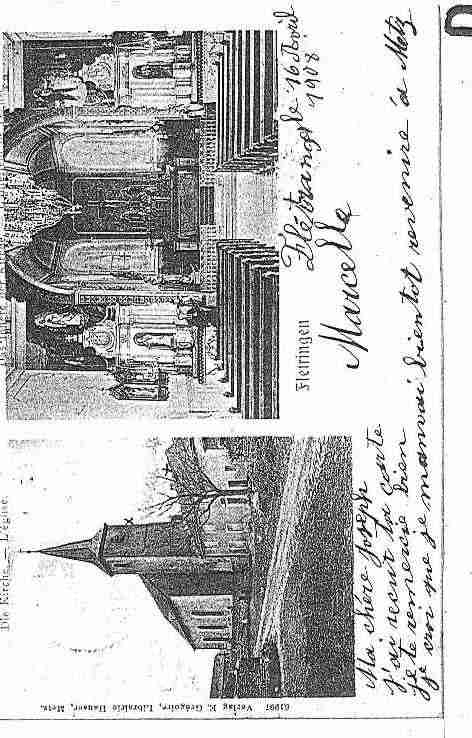 Die Kirche. — L'église.
Flettringen
Flétrange le 16 Avril
1908
Marcelle
Ma chère Joseph
j'ai recuit ta carte
je te remercie bien
je croi que je manvai bientot revenire à Metz
61997 Verlag E. Grégoire, Librairie Hauser, Metz.